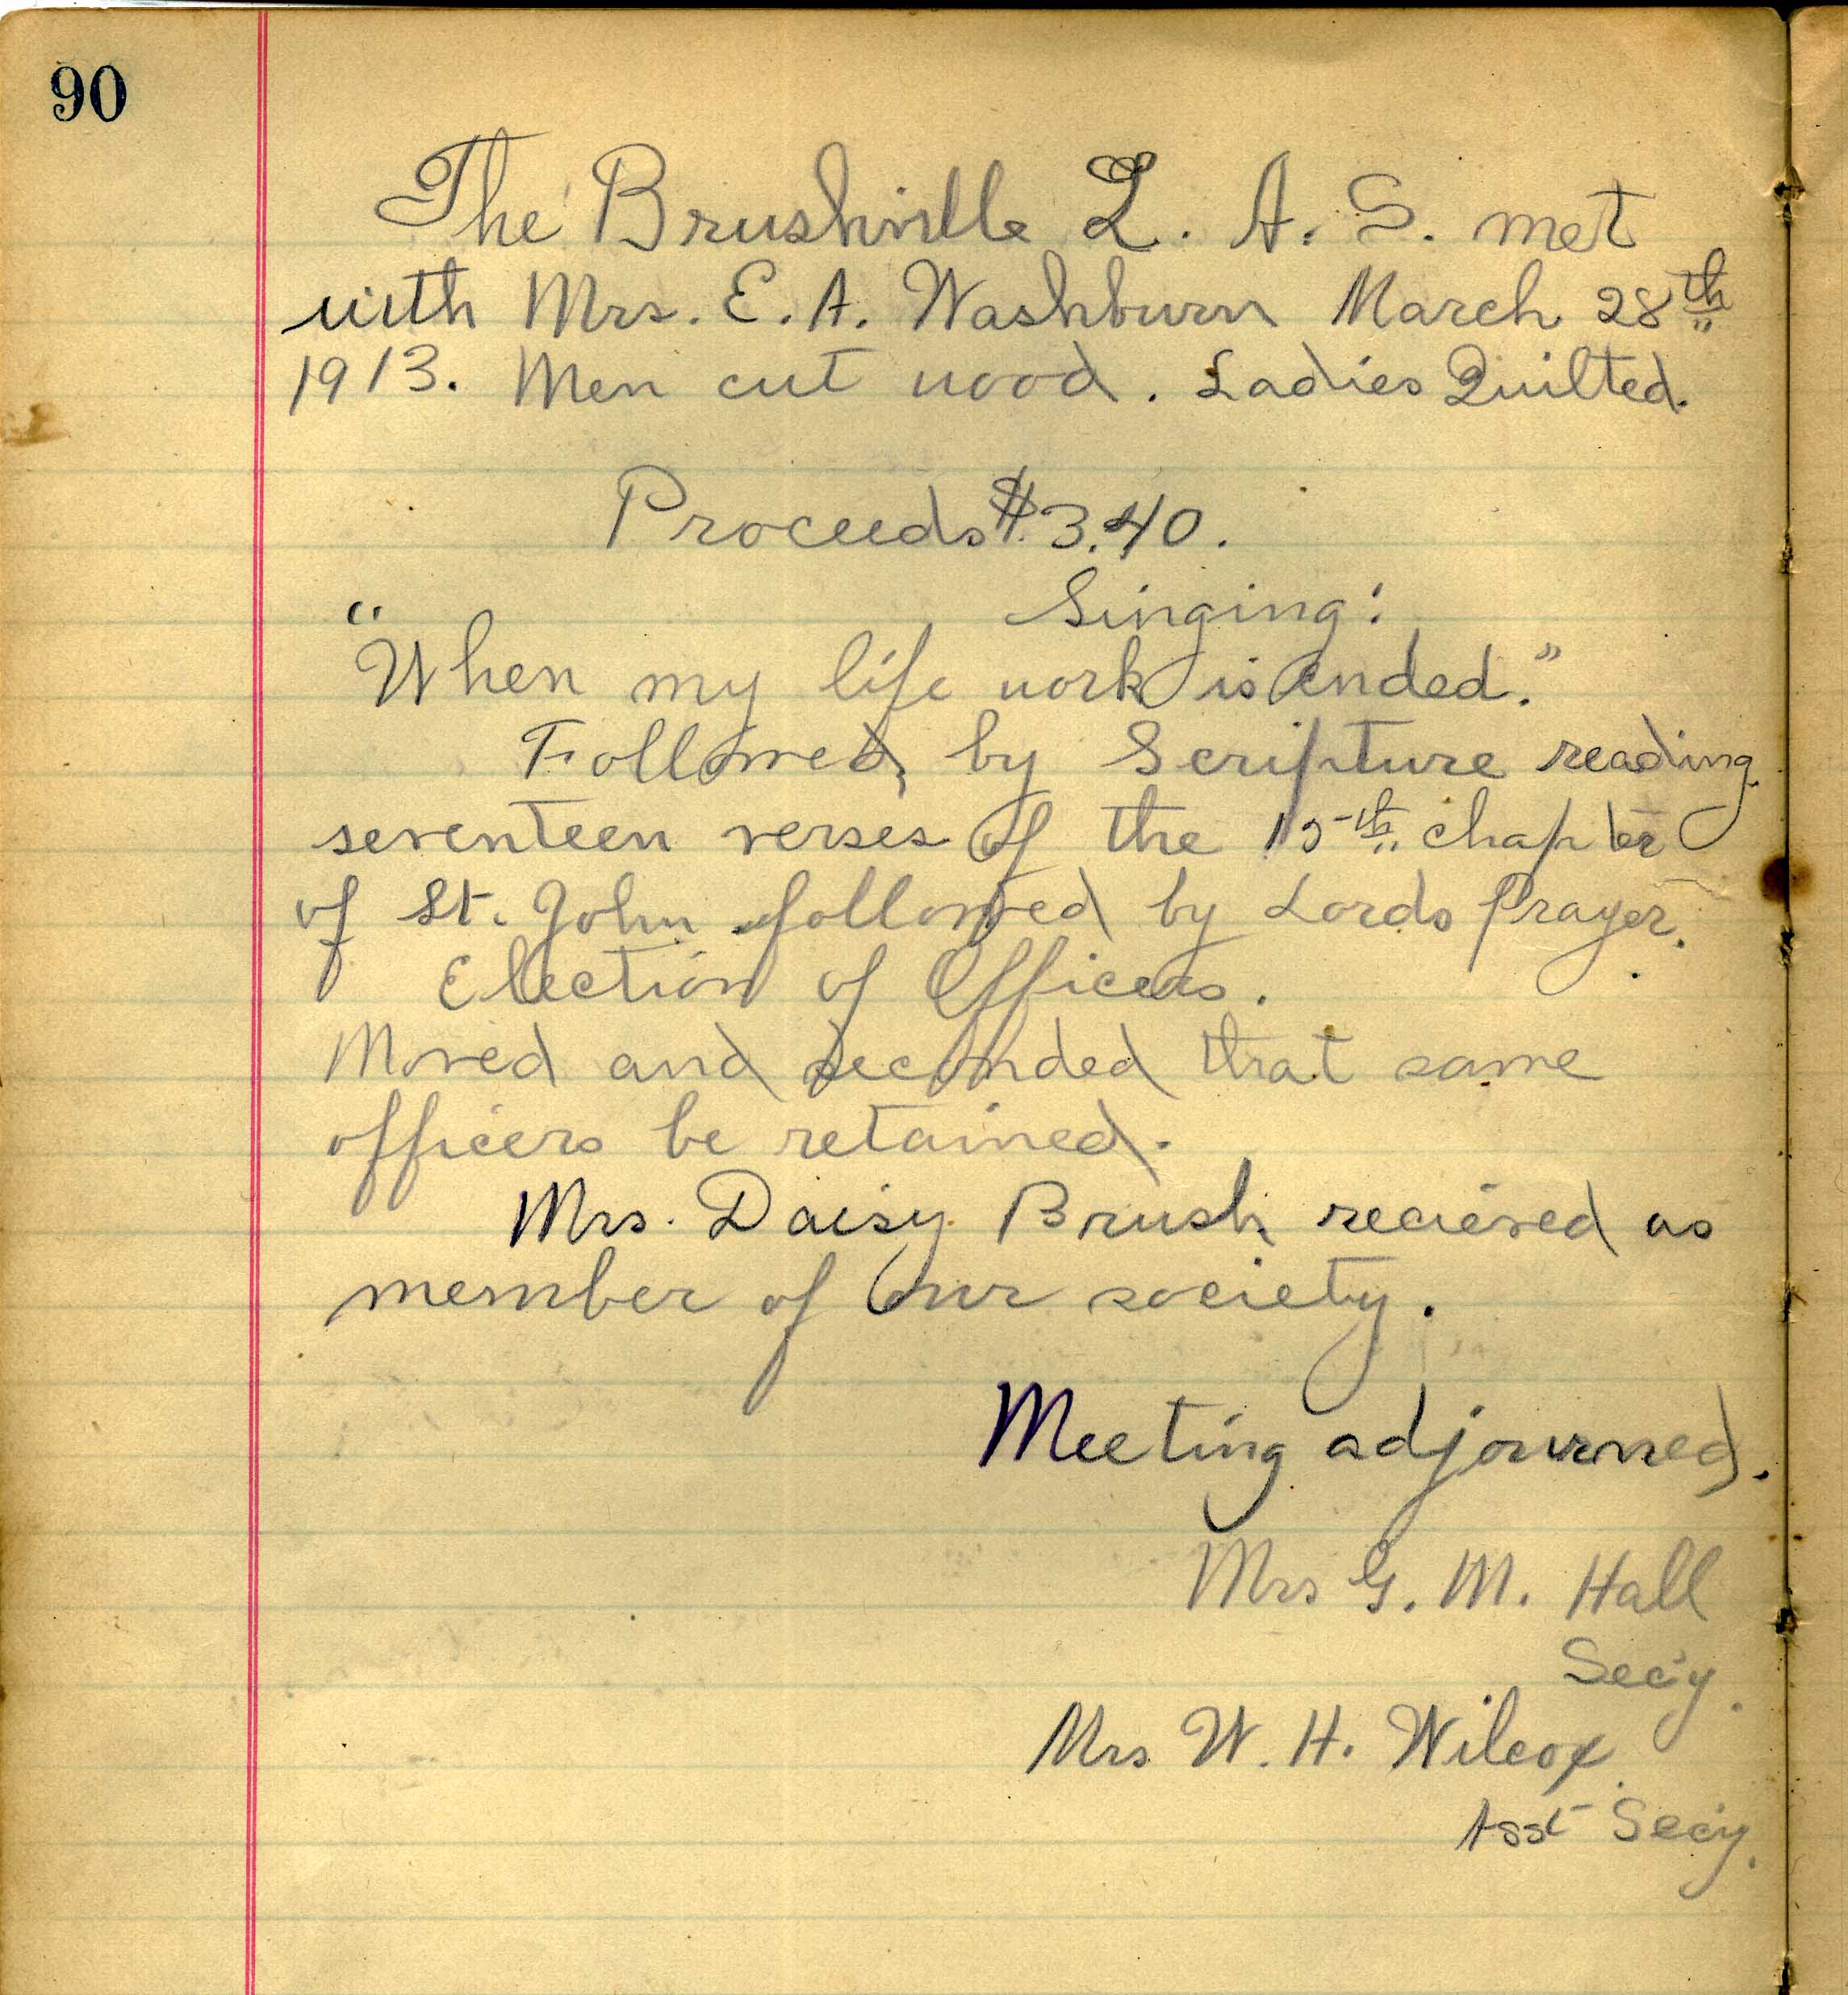 90
The Brushville L. A. S. met
with Mrs. E. A. Washburn March 28th
1913. Men cut wood. Ladies Quilted.
Proceeds $3.40.
Singing:
"When my life work is ended."
Followed by Scripture reading
seventeen verses of the 15th chapter
of St. John followed by Lords Prayer.
Election of Officers.
Moved and seconded that same
officers be retained.
Mrs. Daisy Brush recieved as
member of our society.
Meeting adjourned.
Mrs G. M. Hall
Sec'y.
Mrs W. H. Wilcox.
Asst Sec'y.